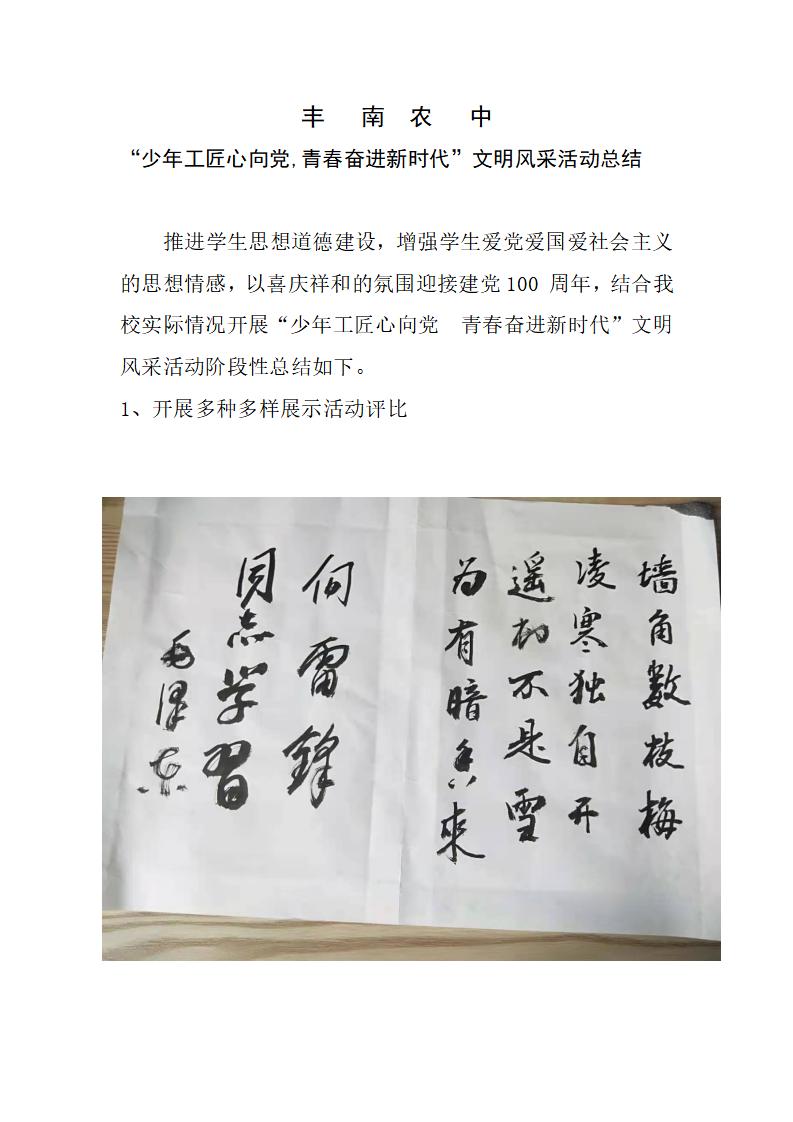 丰 南 农 中
“少年工匠心向党,青春奋进新时代”文明风采活动总结
推进学生思想道德建设，增强学生爱党爱国爱社会主义
的思想情感，以喜庆祥和的氛围迎接建党100 周年，结合我
校实际情况开展“少年工匠心向党 青春奋进新时代”文明
风采活动阶段性总结如下。
1、开展多种多样展示活动评比
墙角数枝梅
凌寒独自开
遥知不是雪
为有暗香来
向雷锋
同志学习
毛泽东